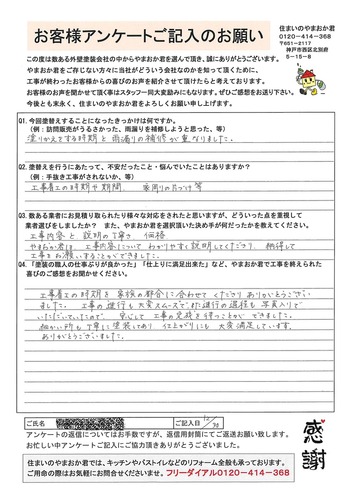 お客様アンケートご記入のお願い
住まいのやまおか君
0120-414-368
〒651-2117
神戸市西区北別府
5-15-8
この度は数ある外壁塗装会社の中からやまおか君を選んで頂き、誠にありがとうございます。
やまおか君をご存じない方々に当社がどういう会社なのかを知って頂くために、
工事が終わったお客様からの喜びのお声を紹介させて頂けたらと考えております。
お客様のお声を聞かせて頂く事はスタッフ一同大変励みにもなります。ぜひご感想をお送り下さい。
今後とも末永く、住まいのやまおか君をよろしくお願い申し上げます。
Q1. 今回塗替えすることになったきっかけは何ですか。
(例：訪問販売がうるさかった、雨漏りを補修しようと思った、等)
塗りかえをする時期と雨漏の補修が重なりました。
Q2. 塗替えを行うにあたって、不安だったこと・悩んでいたことはありますか?
(例：手抜き工事がされないか、等)
工事着工の時期や期間、家周りの片づけ等
Q3. 数ある業者にお見積り取られたり様々な対応をされたと思いますが、どういった点を重視して
業者選びをしましたか? また、やまおか君を選択頂いた決め手が何だったかを教えてください。
工事内容と説明の丁寧さ 価格
やまおか君は、工事内容についてわかりやすく説明してくださり、納得して
工事をお願いすることができました。
Q4. 「塗装の職人の仕事ぶりが良かった」「仕上りに満足出来た」など、やまおか君で工事を終えられた
喜びのご感想をお聞かせください。
工事着工の時期を家族の都合に合わせてくださりありがとうござい
ました。工事の進行も大変スムーズで、また進行の過程も写真入りで
いただいていたので、安心して工事の完成を待つことができました。
細かい所も丁寧に塗装してあり仕上がりにも大変満足しています。
ありがとうございました。
ご氏名
ご記入日
12/30
アンケートの返信についてはお手数ですが、返信用封筒にてご返送お願い致します。
お忙しい中アンケートにご協力頂きありがとうございました。
感謝
住まいのやまおか君では、キッチンやバストイレなどのリフォーム全般も承っております。
ご用命の際はお気軽にお問合せくださいませ。フリーダイアル0120-414-368